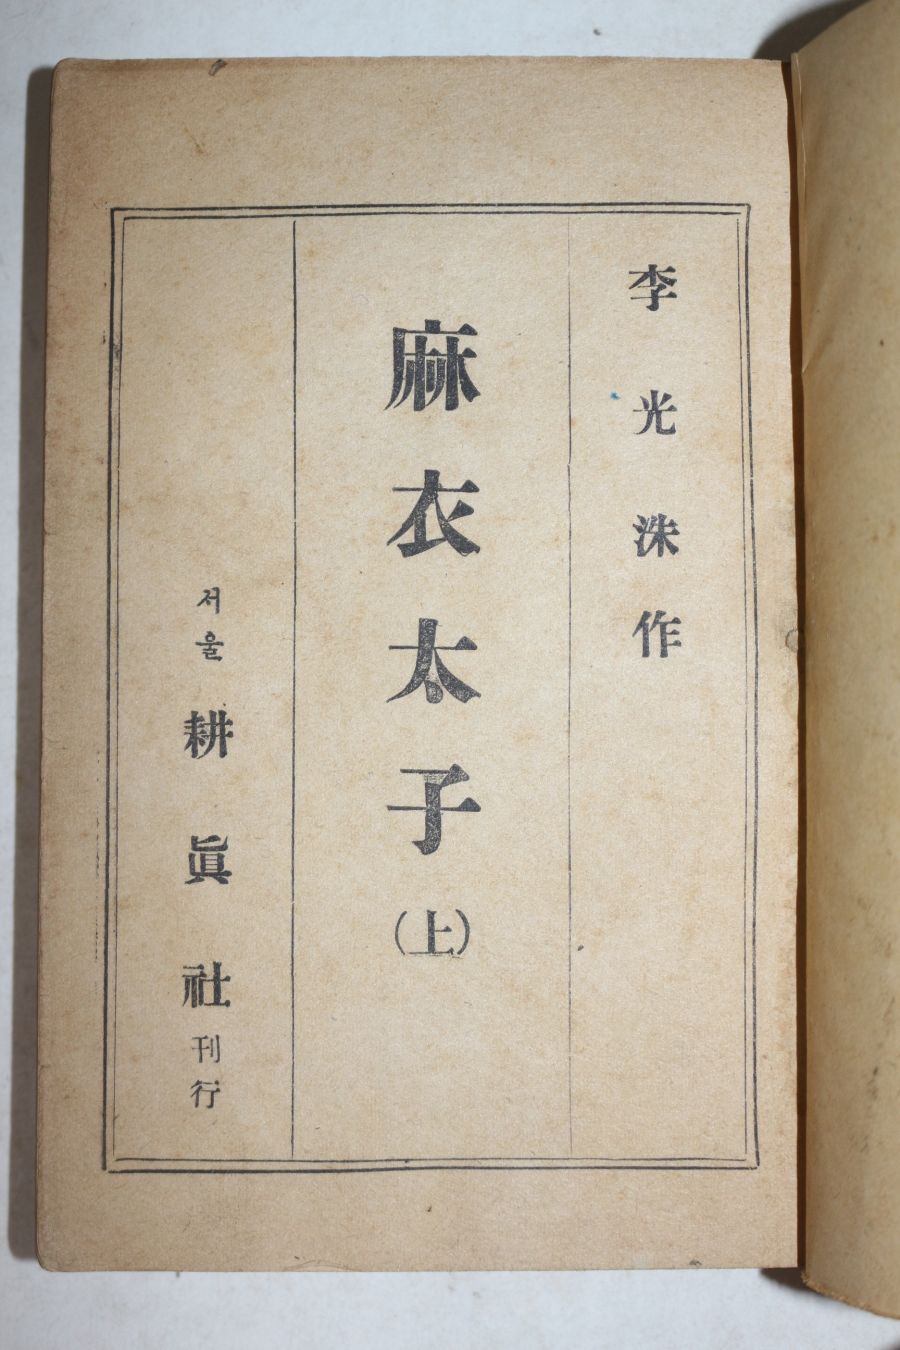 李光洙作
麻衣太子(上)
서울 耕眞社 刊行